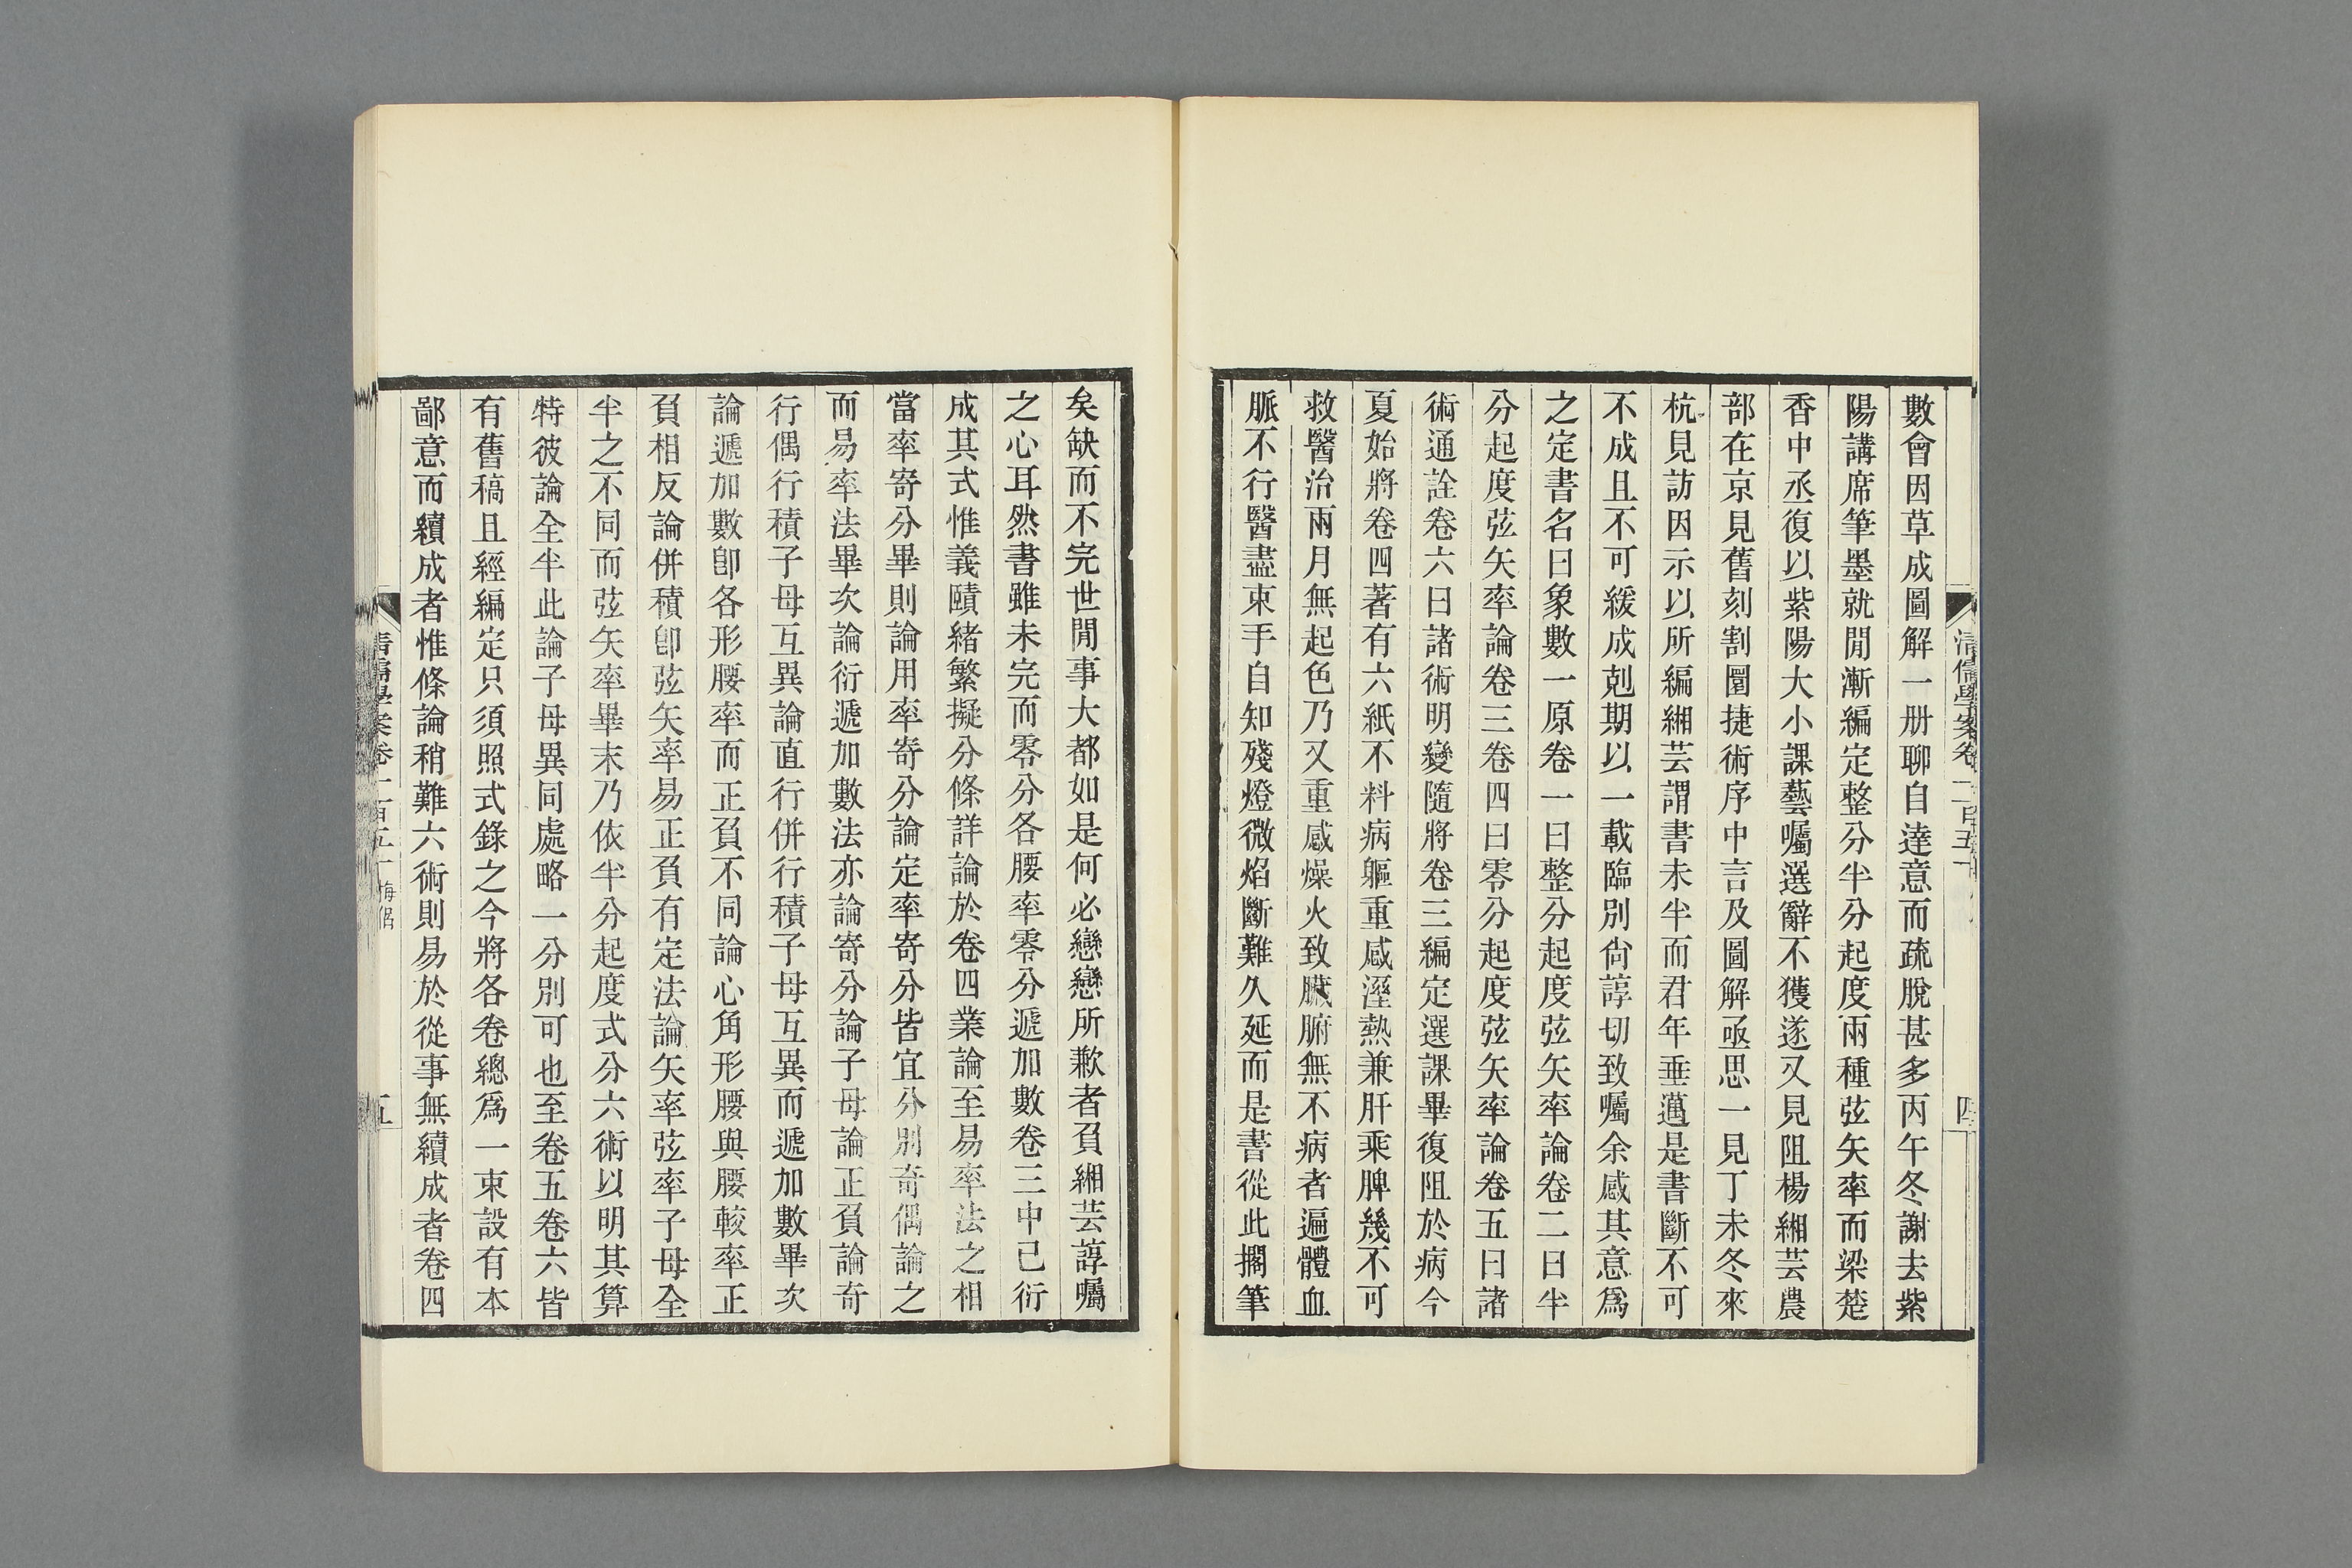 數會因草成圖解一册聊自達意而疏脫甚多丙午冬謝去紫
陽講席筆墨就閒漸編定整分半分起度兩種弦矢率而梁楚
香中丞復以紫陽大小課藝囑選辭不獲遂又見阻楊緗芸農
部在京見舊刻割圜捷術序中言及圖解亟思一見丁未冬來
杭見訪因示以所編緗芸謂書未半而君年垂邁是書斷不可
不成且不可緩成剋期以一載臨別尙諄切致囑余感其意爲
之定書名曰象數一原卷一曰整分起度弦矢率論卷二曰半
分起度弦矢率論卷三卷四曰零分起度弦矢率論卷五曰諸
術通詮卷六曰諸術明變隨將卷三編定選課畢復阻於病今
夏始將卷四著有六紙不料病軀重感溼熱兼肝乘脾幾不可
救醫治兩月無起色乃又重感燥火致臟腑無不病者遍體血
脈不行醫盡束手自知殘燈微焰斷難久延而是書從此擱筆
矣缺而不完世閒事大都如是何必戀戀所歉者負緗芸諄囑
之心耳然書雖未完而零分各腰率零分遞加數卷三中已衍
成其式惟義賾緒繁擬分條詳論於卷四業論至易率法之相
當率寄分畢則論用率寄分論定率寄分皆宜分別奇偶論之
而易率法畢次論衍遞加數法亦論寄分論子母論正負論奇
行偶行積子母互異論直行併行積子母互異而遞加數畢次
論遞加數卽各形腰率而正負不同論心角形腰與腰較率正
負相反論併積卽弦矢率易正負有定法論矢率弦率子母全
半之不同而弦矢率畢末乃依半分起度式分六術以明其算
特彼論全半此論子母異同處略一分別可也至卷五卷六皆
有舊稿且經編定只須照式錄之今將各卷總爲一束設有本
鄙意而續成者惟條論稍難六術則易於從事無續成者卷四
清儒學案卷一百五十 梅侶
五